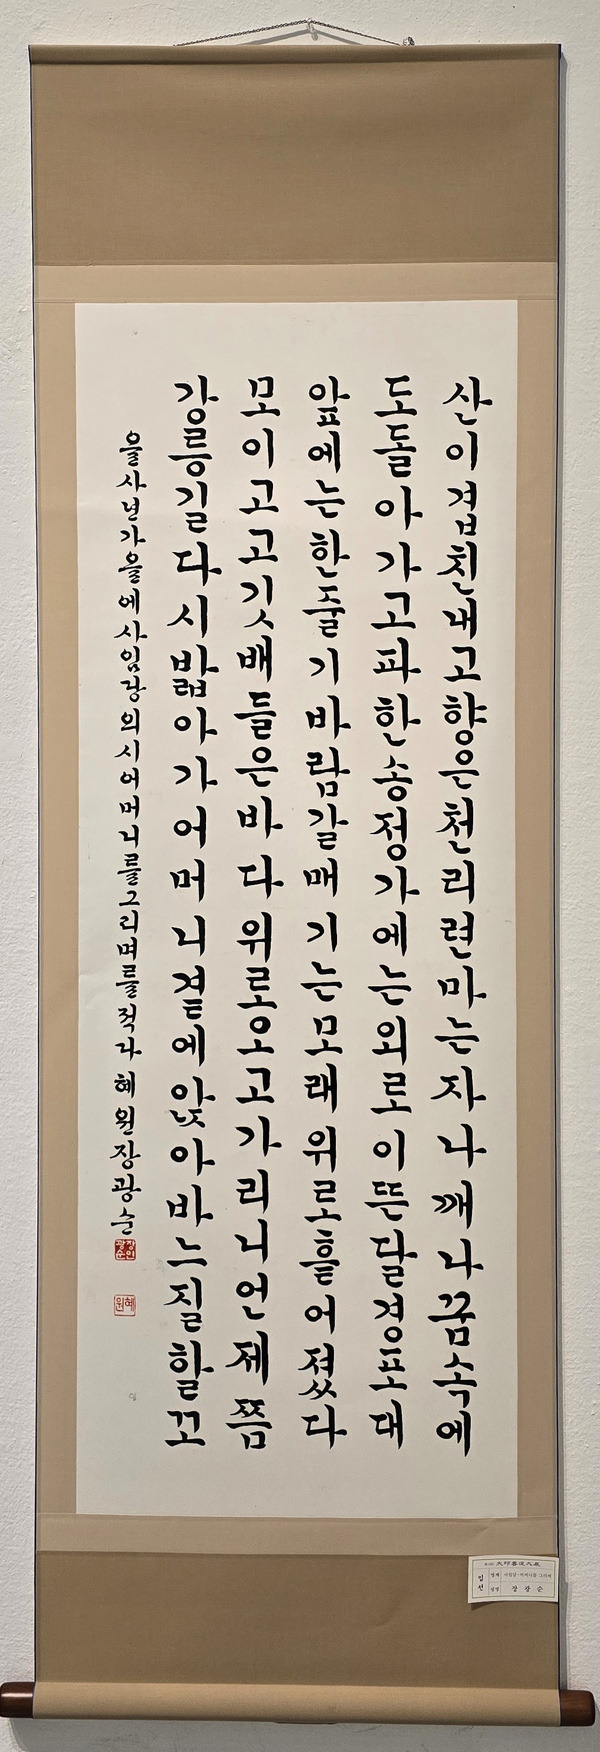 산이겹친내고향은천리련마는자나깨나꿈속에
도돌아가고파한송정가에는외로이뜬달경포대
앞에는한줄기바람갈매기는모래위로흩어졌다
모이고고깃배들은바다위로오고가리니언제쯤
강릉길다시밟아가어머니곁에앉아바느질할꼬
을사년가을에사임당의시어머니를그리며를적다 혜원장광순
장인광순
혜원
입선
명제 사임당-어머니를 그리며
성명 장 광 순